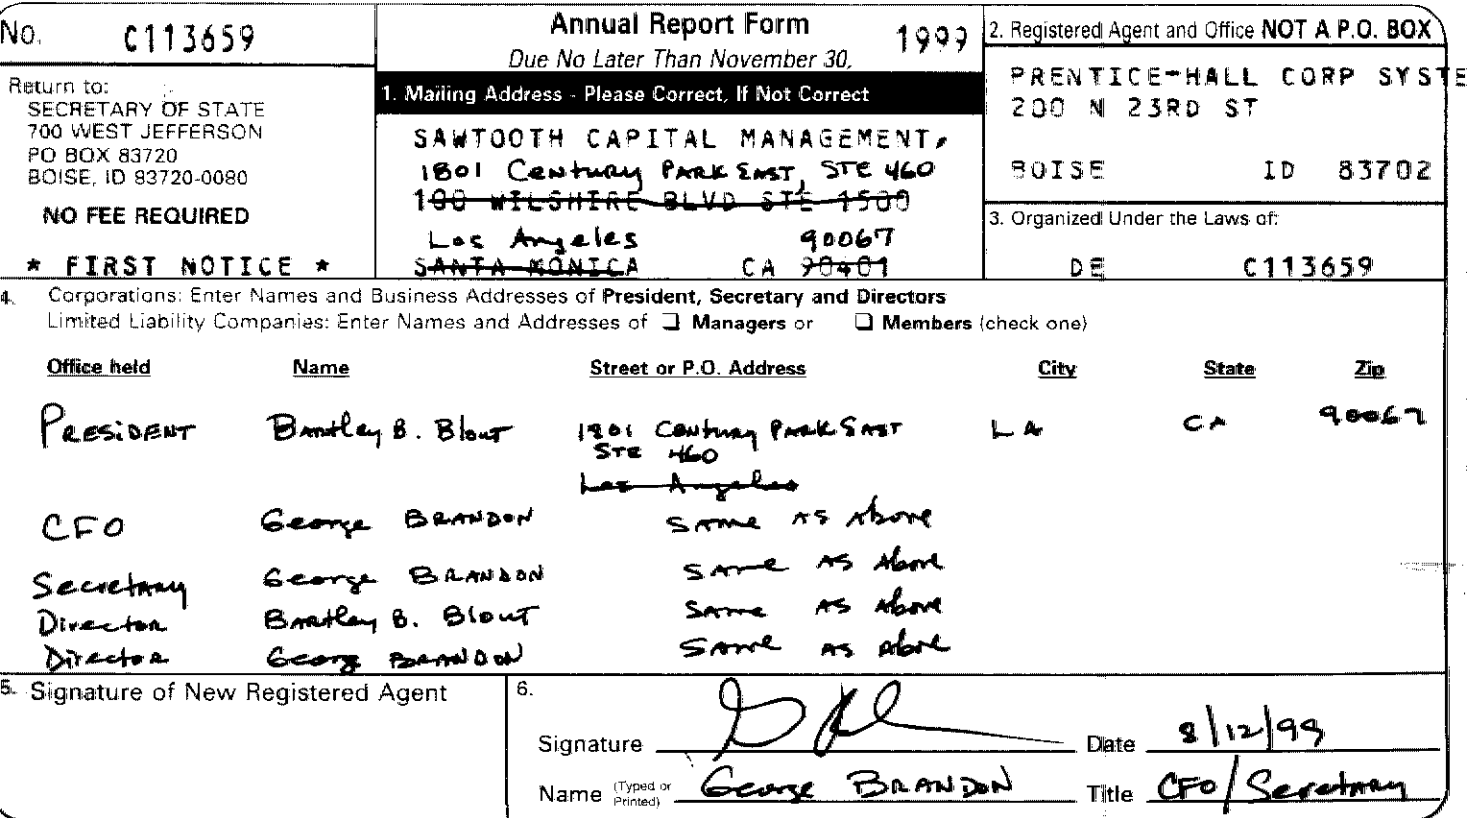 No. C113659
Return to:
SECRETARY OF STATE
700 WEST JEFFERSON
PO BOX 83720
BOISE, ID 83720-0080
NO FEE REQUIRED
* FIRST NOTICE *
Annual Report Form 1999
Due No Later Than November 30,
1. Mailing Address - Please Correct, If Not Correct
SAWTOOTH CAPITAL MANAGEMENT,
1801 Century PARK EAST, STE 460
100 WILSHIRE BLVD STE 1500
Los Angeles 90067
SANTA MONICA CA 90401
2. Registered Agent and Office NOT A P.O. BOX
PRENTICE-HALL CORP SYSTE
200 N 23RD ST
BOISE ID 83702
3. Organized Under the Laws of:
DE C113659
4. Corporations: Enter Names and Business Addresses of President, Secretary and Directors
Limited Liability Companies: Enter Names and Addresses of ❑ Managers or ❑ Members (check one)
Office held Name Street or P.O. Address City State Zip
PRESIDENT Bartley B. Blout 1801 Century PARK EAST LA CA 90067
STE 460
Los Angeles
CFO George BRANDON SAME AS Above
Secretary George BRANDON SAME AS Above
Director Bartley B. Blout SAME AS Above
Director Georg BRANDON SAME AS Above
5. Signature of New Registered Agent
6.
Signature Date 8/12/99
Name (Typed or Printed) George BRANDON Title CFO/Secretary